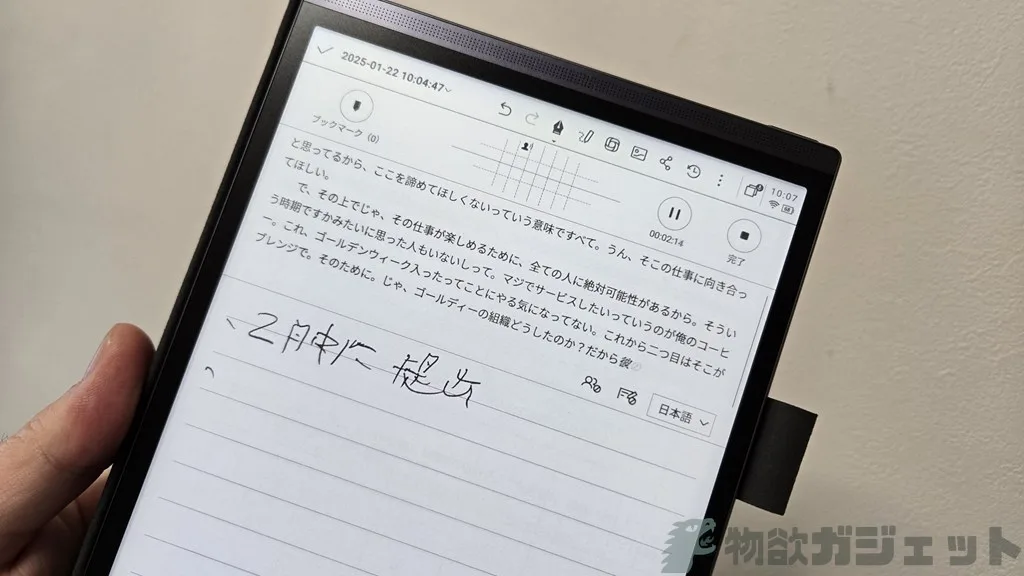 2025-01-22 10:04:47
10:07
ブックマーク (0)
00:02:14
完了
と思ってるから、ここを諦めてほしくないっていう意味ですべて。うん、そこの仕事に向き合っ
てほしい。
で、その上でじゃ、その仕事が楽しめるために、全ての人に絶対可能性があるから。そうい
う時期ですかみたいに思った人もいないしって。マジでサービスしたいっていうのが俺のコーヒ
ー。これ、ゴールデンウィーク入ったってことにやる気になってない。これから二つ目はそこが
ブレンジで。そのために。じゃ、ゴールディーの組織どうしたのか？だから彼
日本語
2月中に提出
物欲ガジェット